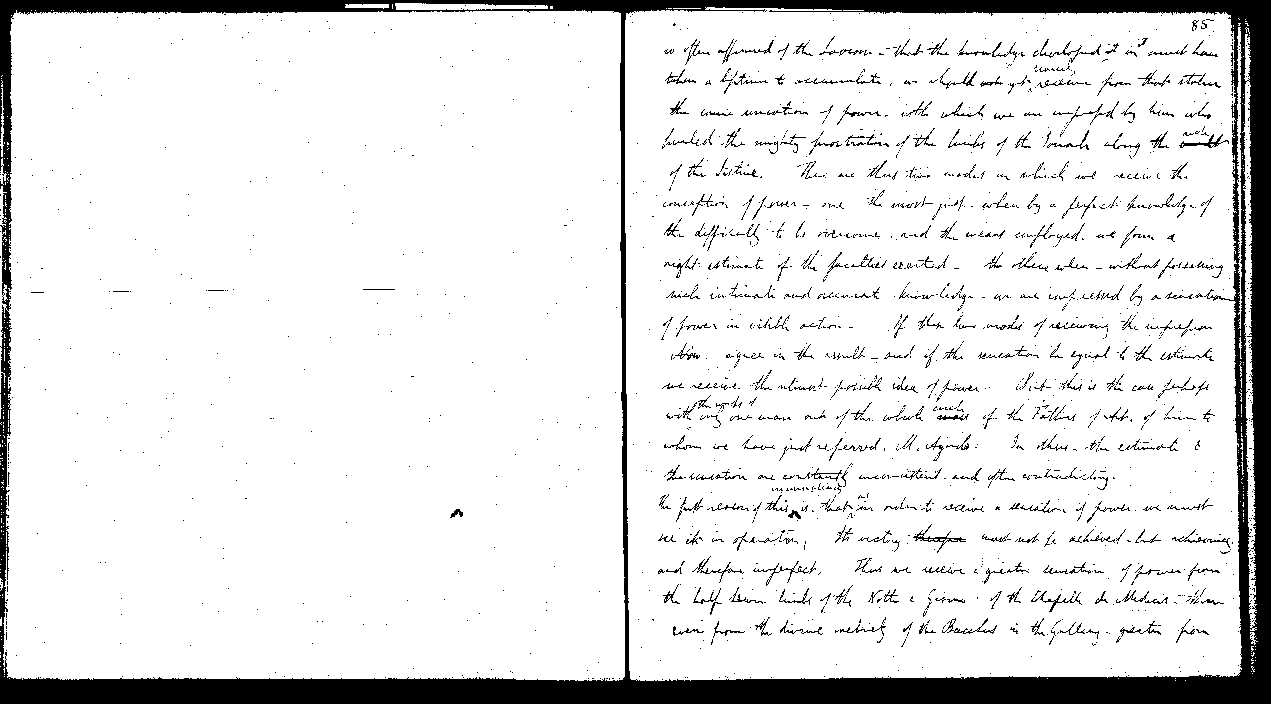 85
so often affirmed of the Laocoon - that the knowledge developed in it must have
taken a lifetime to accumulate, we should not yet receive from that statue
the same sensation of power, with which we are impressed by him who
hurled the mighty prostration of the limbs of the Jonah along the arch
of the Sistine. There are thus two modes in which we receive the
conception of power - one the most just - when by a perfect knowledge of
the difficulty to be overcome - and the means employed, we form a
right estimate of the faculties exerted - the other when - without possessing
such intimate and accurate knowledge - we are impressed by a sensation
of power in visible action - If these two modes of receiving the impression
agree in the result - and if the sensation be equal to the estimate
we receive the utmost possible idea of power. But this is the case perhaps
with the works of only one man out of the whole circle of the Fathers of Art, of him to
whom we have just referred, M. Agnolo. In others - the estimate &
the sensation are constantly inconsistent - and often contradictory.
The first reason of this inconsistency is, that in order to receive a sensation of power we must
see it in operation, Its victory must not be achieved - but achieving
and therefore imperfect, Thus we receive a greater sensation of power from
the half hewn limbs of the Notte e Giorno of the Chapelle de Medicis - than
even from the divine of the Bacchus in the Gallery - greater from